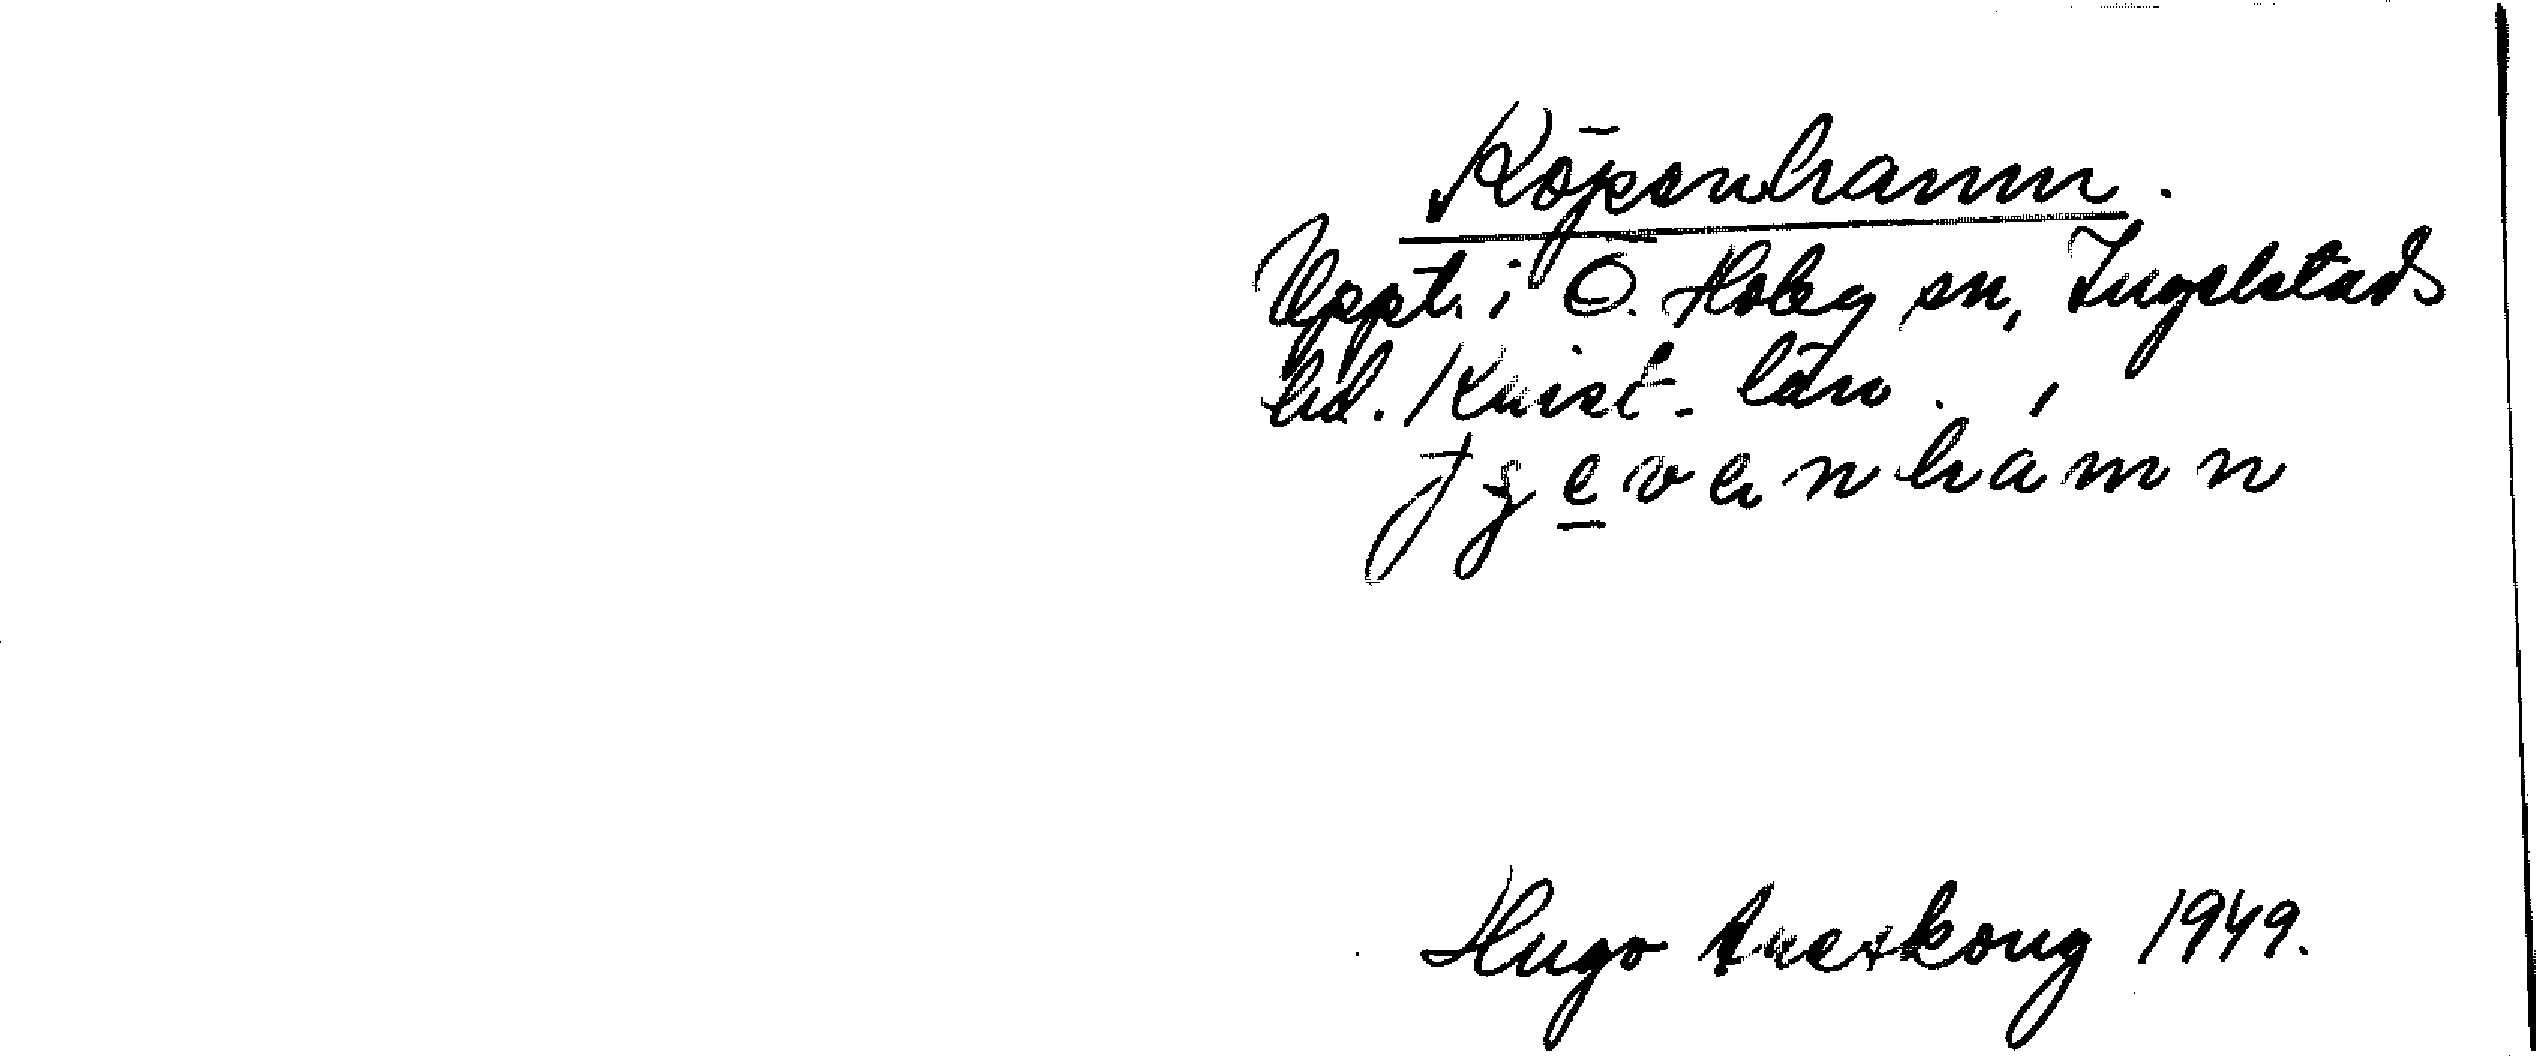 Köpenhamn.
Uppt. i Ö. Hoby sn, Ingelstads
hd. Krist. län.
Hugo Areskoug 1949.